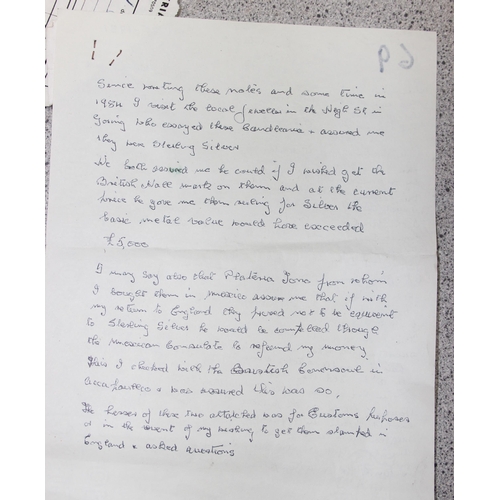 69
Since writing these notes and some time in
1984 I visit the local Jeweller in the High St in
Goring who assayed these Candelabria + assured me
they were Sterling Silver
He both assured me he could if I wished get the
British Hall mark on them and at the current
price he gave me then ruling for Silver the
basic metal value would have exceeded
£5,000
I may say also that Plateria Jona from whom
I bought them in Mexico assure me that if with
my return to England they proved not to be equivent
to Sterling Silver he would be compelled through
the Mexican Consulate to refund my money.
This I checked with the British Consoul in
+ was assured this was so.
The of these two attatched was for Customs purposes
+ in the event of my wishing to get them stamped in
England + asked questions